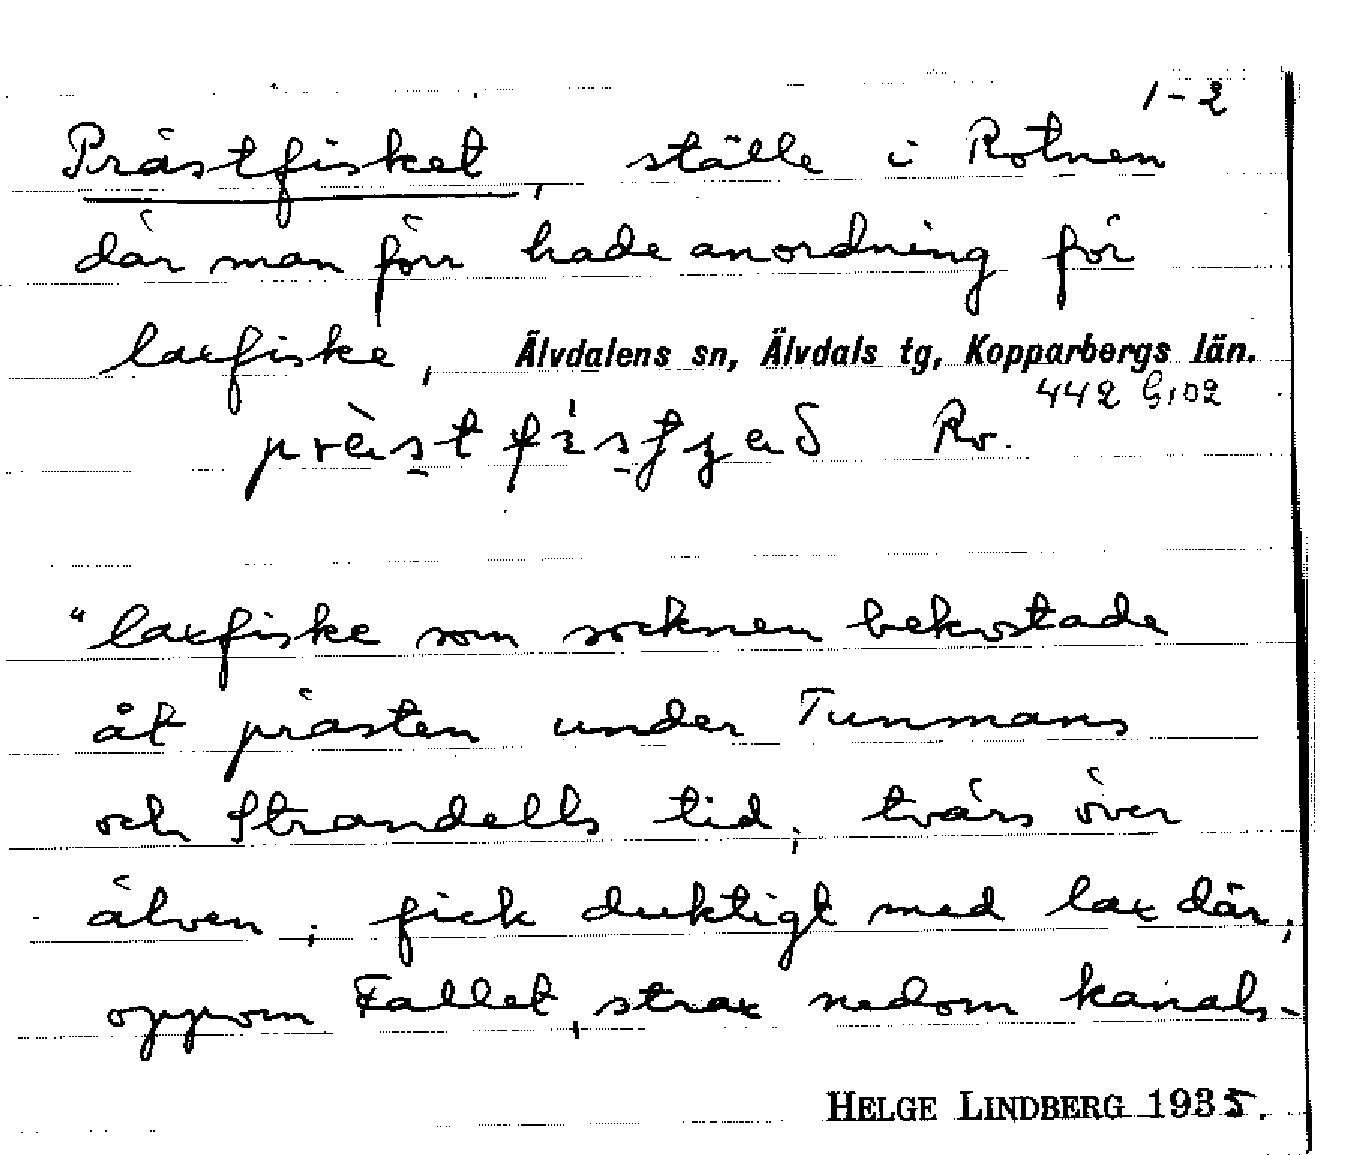 1-2
Prästfisket, ställe i Rotnen
där man förr hade anordning för
laxfiske, Älvdalens sn, Älvdals tg, Kopparbergs län.
442
Rv.
"laxfiske som socknen bekostade
åt prästen under Tunmans
och Strandells tid, tvärs över
älven, fick duktigt med lax där,
oppom Fallet, strax nedom kanals-
HELGE LINDBERG 1935.